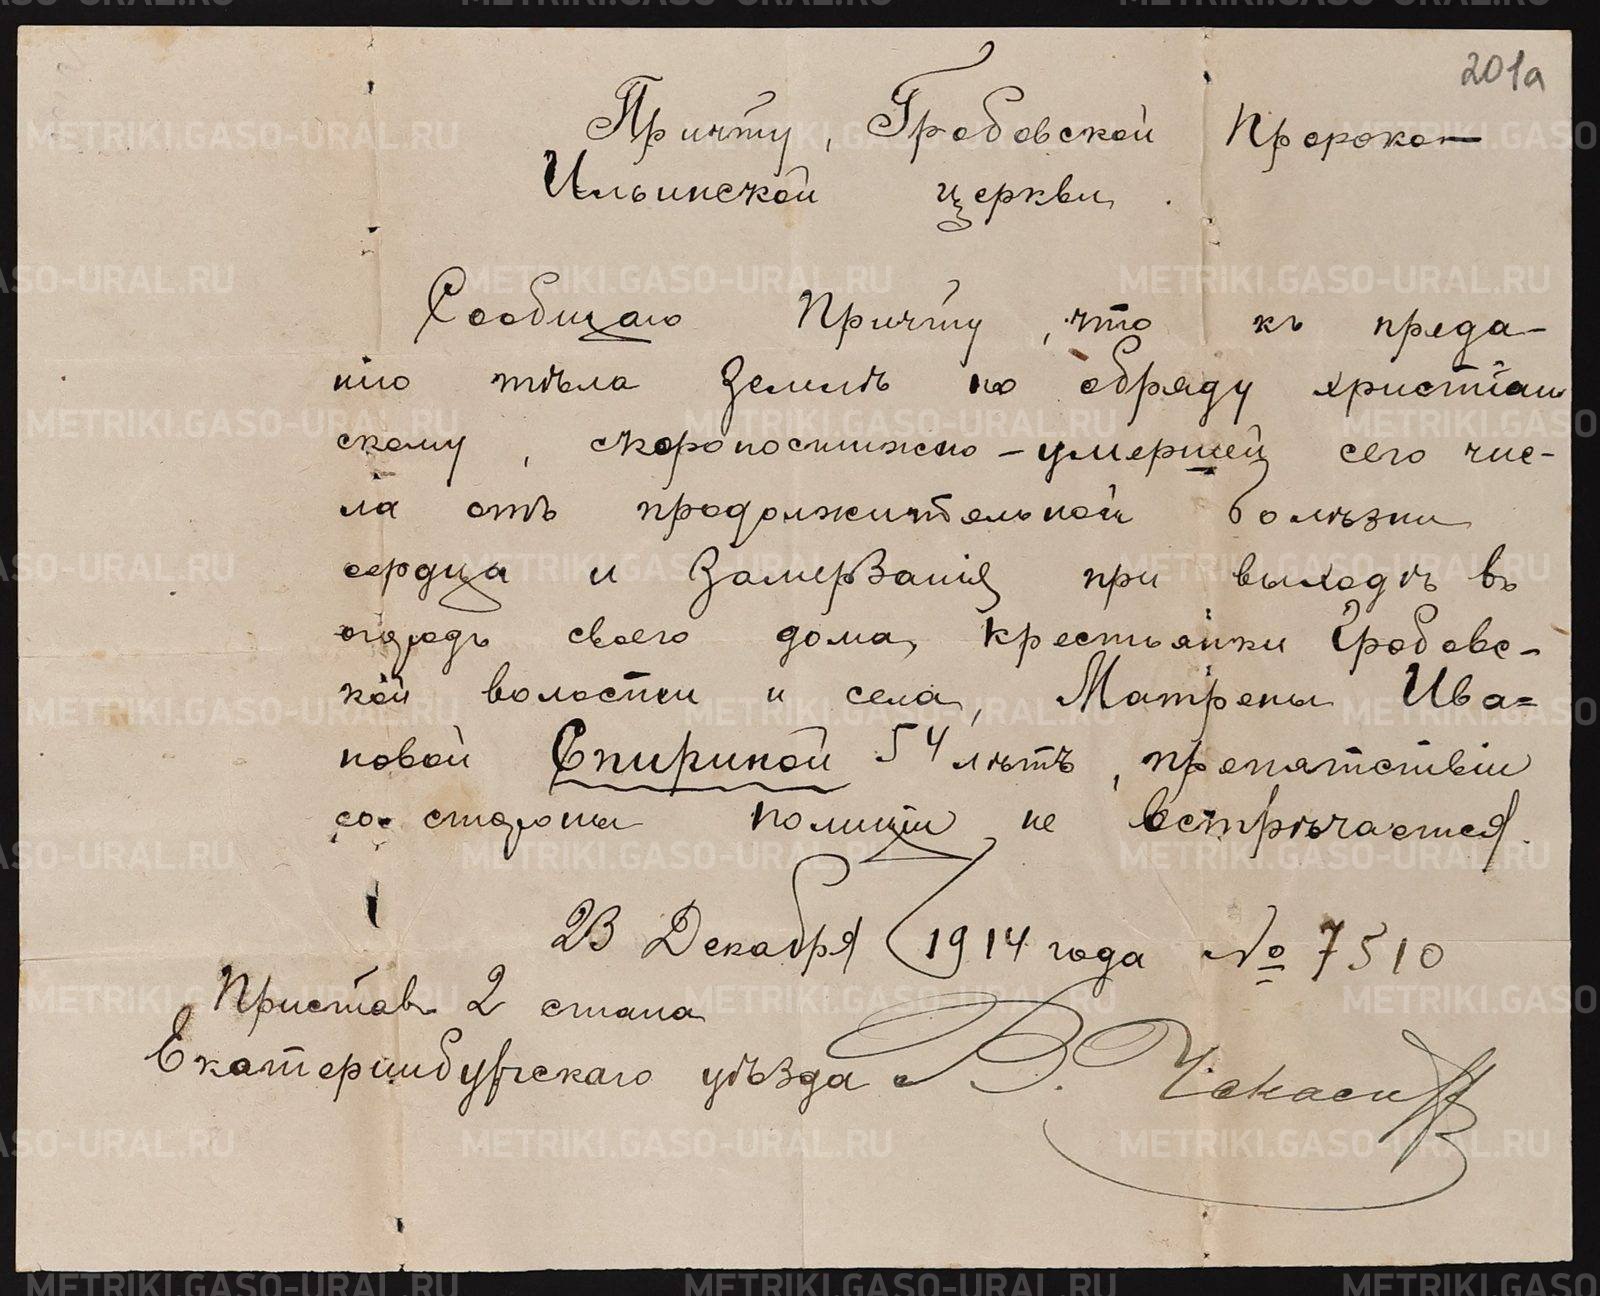 201а
Причту, Гробовской Пророко-
Ильинской церкви.
Сообщаю Причту, что къ преда-
нію тѣла землѣ по обряду христіан
скому, скоропостижно-умершей сего чис-
ла отъ продолжительной болѣзни
сердца и замерзанія при выходѣ въ
огородъ своего дома, крестьянки Гробовс-
кой волости и села, Матрены Ива=
новой Спириной 54 лѣтъ, препятствіи
со стороны полиціи не встрѣчается.
23 Декабря 1914 года № 7510
Приставъ 2 стана
Екатеринбургскаго уѣзда В.
METRIKI.GASO-URAL.RU